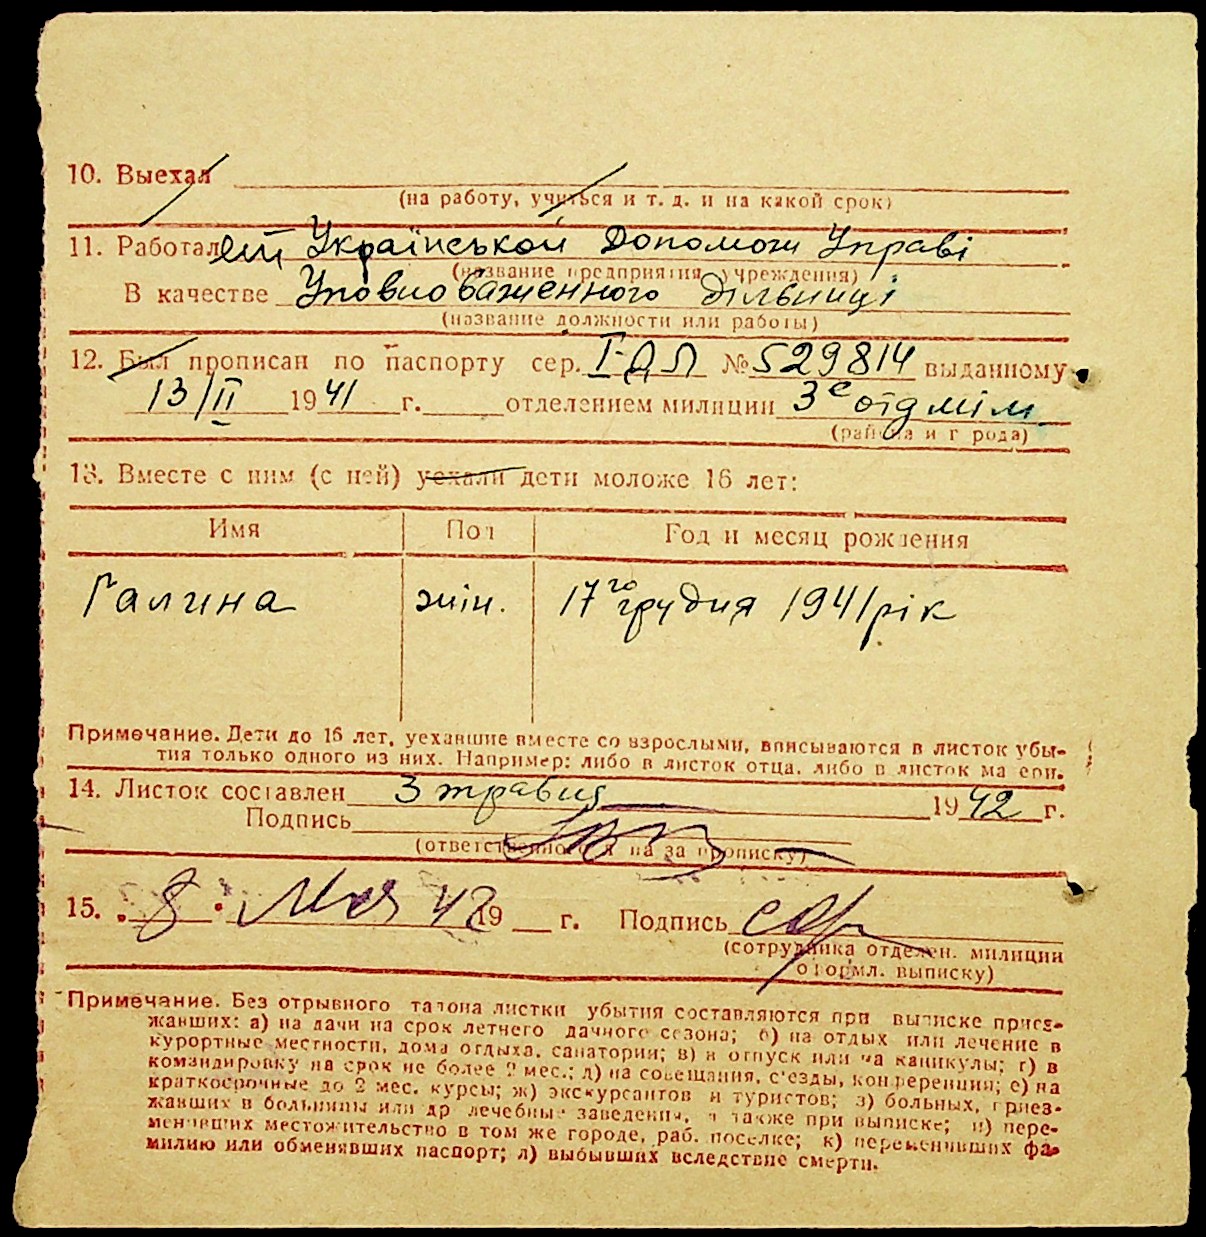 10. Выехал
(на работу, учиться и т. д. и на какой срок)
11. Работал Українській Допомоги Управі
(название предприятия, учреждения)
В качестве Уповноваженного дільниці
(название должности или работы)
12. Был прописан по паспорту сер. I-ДЛ № 529814 выданному
13/II 1941 г. отделением милиции 3е отд міл
(района и города)
13. Вместе с ним (с ней) уехали дети моложе 16 лет:
Имя Пол Год и месяц рождения
Галина жін. 17го грудня 1941 рік
Примечание. Дети до 16 лет, уехавшие вместе со взрослыми, вписываются в листок убы-
тия только одного из них. Например: либо в листок отца, либо в листок матери.
14. Листок составлен 3 травня 1942 г.
Подпись
(ответственного на за прописку)
15. „8" Мая 42 19 г. Подпись
(сотрудника отделен. милиции
оформл. выписку)
Примечание. Без отрывного талона листки убытия составляются при выписке приез-
жавших: а) на дачи на срок летнего дачного сезона; б) на отдых или лечение в
курортные местности, дома отдыха, санатории; в) в отпуск или на каникулы; г) в
командировку на срок не более 2 мес.; д) на совещания, с'езды, конференции; е) на
краткосрочные до 2 мес. курсы; ж) экскурсантов и туристов; з) больных, приез-
жавших в больницы или др лечебные заведения, а также при выписке; и) пере-
менивших местожительство в том же городе, раб. поселке; к) переменивших фа-
милию или обменявших паспорт; л) выбывших вследствие смерти.